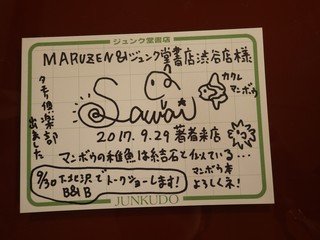 ジュンク堂書店
MARUZEN&ジュンク堂書店渋谷店様
タモリ倶楽部
出ました
カクレ
マンボウ
Sawai
2017.9.29 著者来店
マンボウの稚魚は結石と似ている…
マンボウ本
よろしくネ!
9/30 下北沢でトークショーします!
B&B
JUNKUDO